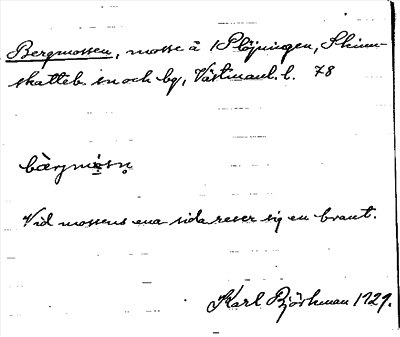 Bergmossen, mosse å Plöjningen, Skinn-
skatteb. sn och bg, Västmanl. l. 78
bærgmåsn
Vid mossens ena sida reser sig en brant.
Karl Björkman 1929.